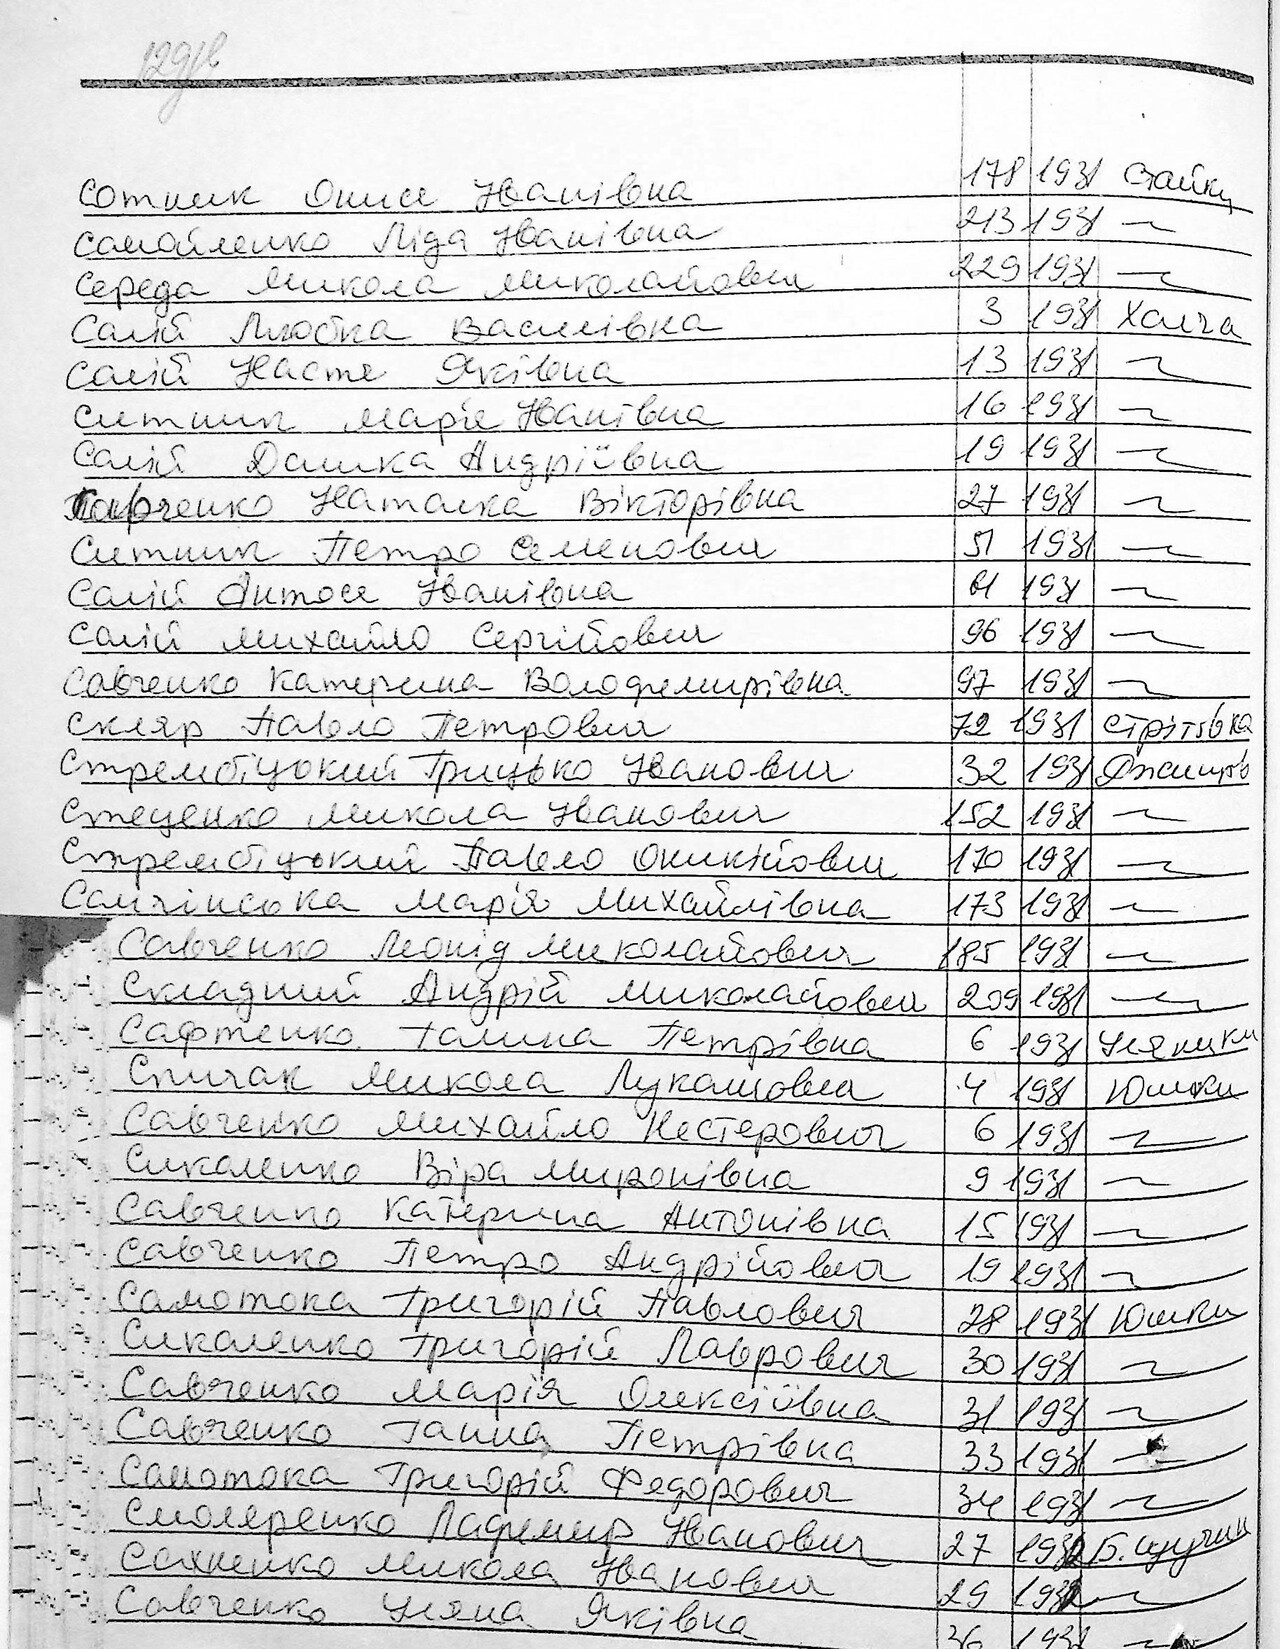 129зв
Сотник Онися Іванівна 178 1931 Стайки
Самойленко Ліда Іванівна 213 1931 —
Середа Микола Миколайович 229 1931 —
Салій Любка Василівна 3 1931 Халча
Салій Настя Яківна 13 1931 —
Ситник Марія Іванівна 16 1931 —
Салій Домка Андріївна 19 1931 —
Савченко Наталка Вікторівна 27 1931 —
Ситник Петро Семенович 51 1931 —
Салій Антося Іванівна 61 1931 —
Салій Михайло Сергійович 96 1931 —
Савченко Катерина Володимирівна 97 1931 —
Скляр Павло Петрович 72 1931 Стрітівка
Стрембіцький Грицько Іванович 32 1931
Стеценко Микола Іванович 152 1931 —
Стрембіцький Павло Оникійович 170 1931 —
Самчінська Марія Михайлівна 173 1931 —
Савченко Леонід Миколайович 185 1931 —
Складний Андрій Миколайович 209 1931 —
Сафтенко Галина Петрівна 6 1931 Уляники
Спичак Микола Лукашович 4 1931 Юшки
Савченко Михайло Нестерович 6 1931 —
Сикаленко Віра Миронівна 9 1931 —
Савченко Катерина Антонівна 15 1931 —
Савченко Петро Андрійович 19 1931 —
Самотока Григорій Павлович 28 1931 Юшки
Сикаленко Григорій Лаврович 30 1931 —
Савченко Марія Олексіївна 31 1931 —
Савченко Ганна Петрівна 33 1931 —
Самотока Григорій Федорович 34 1931 —
Смоляренко Ладимир Іванович 27 1932 Б. Щучин
Сахненко Микола Іванович 29 1932 —
Савченко Уляна Яківна 36 1932 —